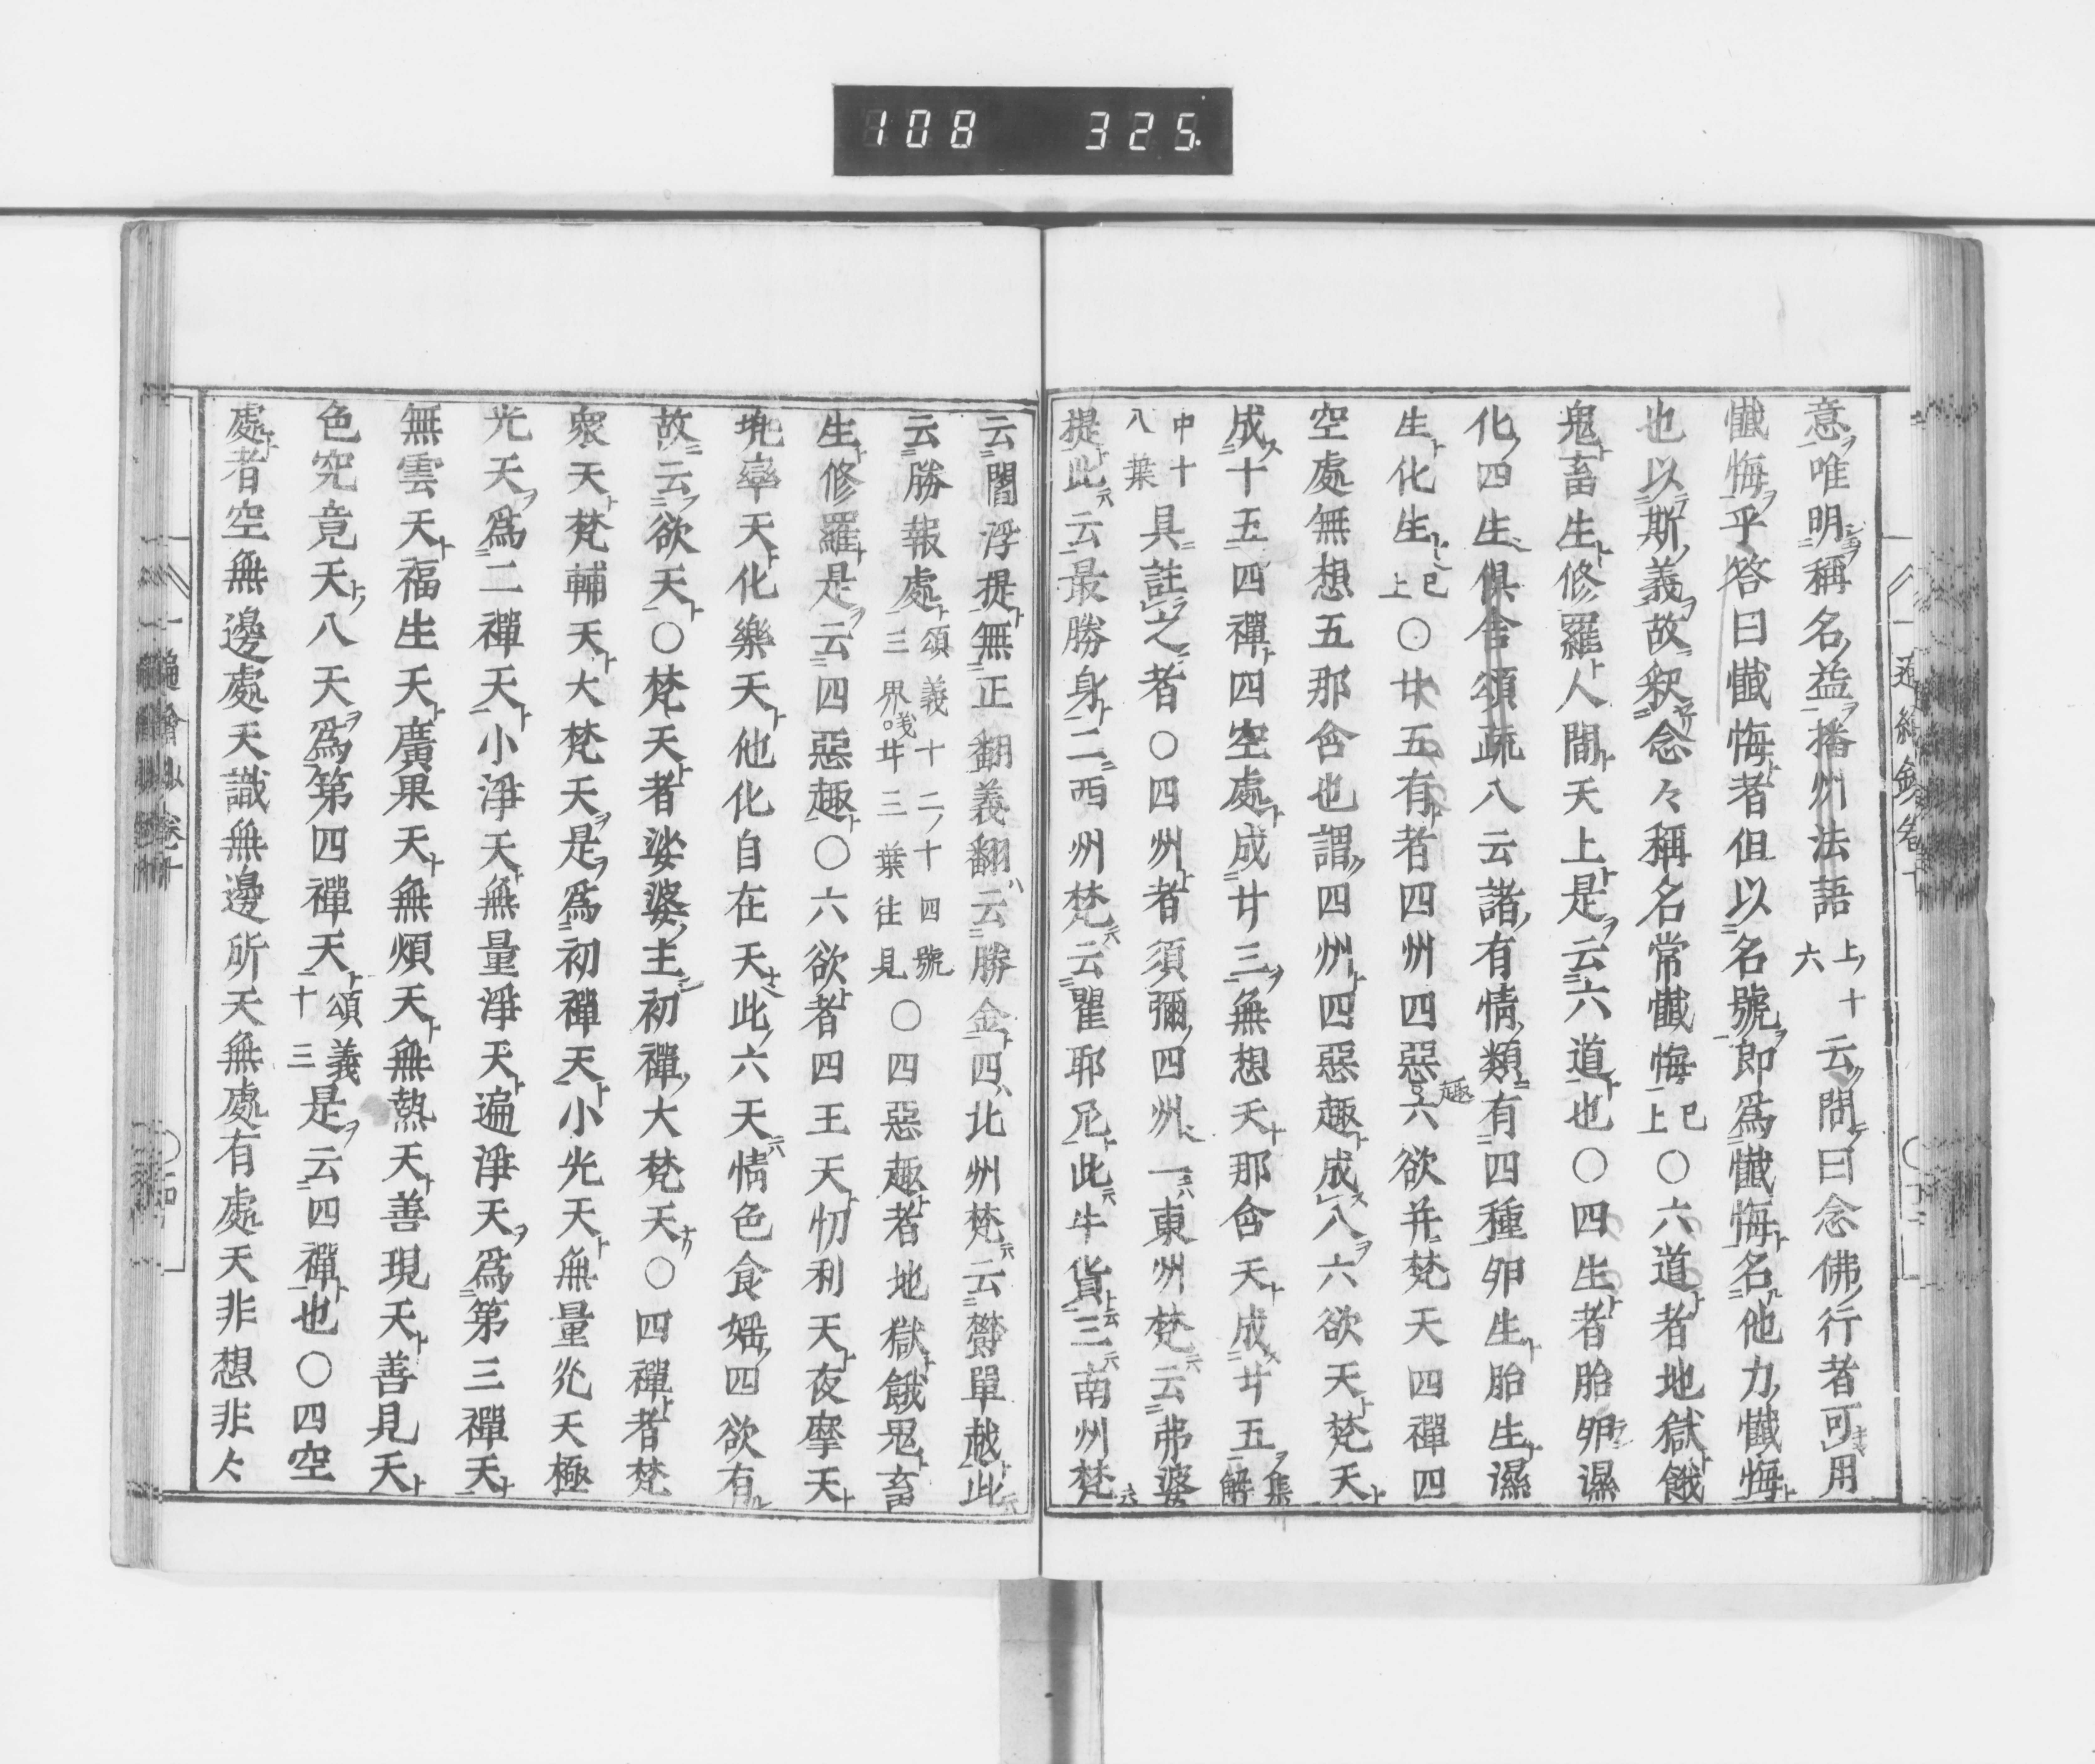 108 325
意唯明稱名益播州法語上十六云問曰念佛行者可用
懺悔乎答曰懺悔者但以名號即爲懺悔名他力懺悔
也以斯義故釈念々稱名常懺悔已上○六道者地獄餓
鬼畜生修羅人間天上是云六道也○四生者胎卵濕
化四生俱舍頌疏八云諸有情類有四種卵生胎生濕
生化生已上○廿五有者四州四惡趣六欲并梵天四禪四
空處無想五那含也謂四州四惡趣成八六欲天梵天
成十五四禪四空處成廿三無想天那含天成廿五集解
中十八葉具註之者○四州者須彌四州一東州梵云弗婆
提此云最勝身二西州梵云瞿耶尼此牛貨三南州梵
云閻浮提無正翻義翻云勝金四北州梵云欝單越此
云勝報處頌義十二ノ十四號三界義廿三葉往見○四惡趣者地獄餓鬼畜
生修羅是云四惡趣○六欲者四王天忉利天夜摩天
兠率天化樂天他化自在天此六天情色食婬四欲有
故云欲天○梵天者娑婆主初禪大梵天○四禪者梵
衆天梵輔天大梵天是爲初禪天小光天無量光天極
光天爲二禪天小淨天無量淨天遍淨天爲第三禪天
無雲天福生天廣果天無煩天無熱天善現天善見天
色究竟天八天爲第四禪天頌義十三是云四禪也○四空
處者空無邊處天識無邊所天無處有處天非想非々